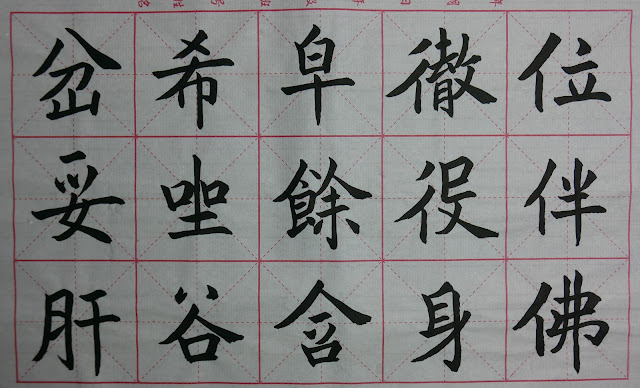 位伴佛
徹役身
皁餘含
希坐谷
岔妥肝